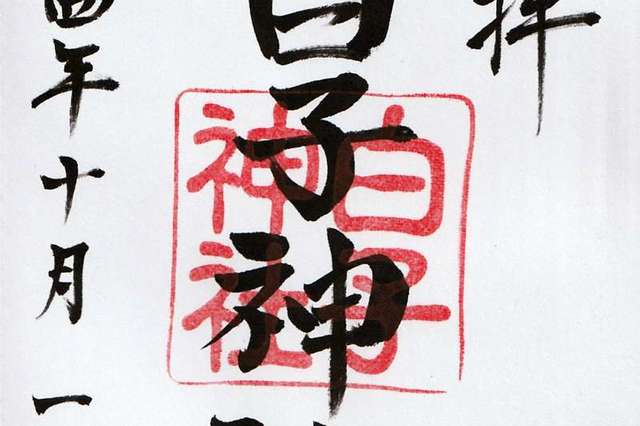 拝
白子神
白子
神社
四年十月一